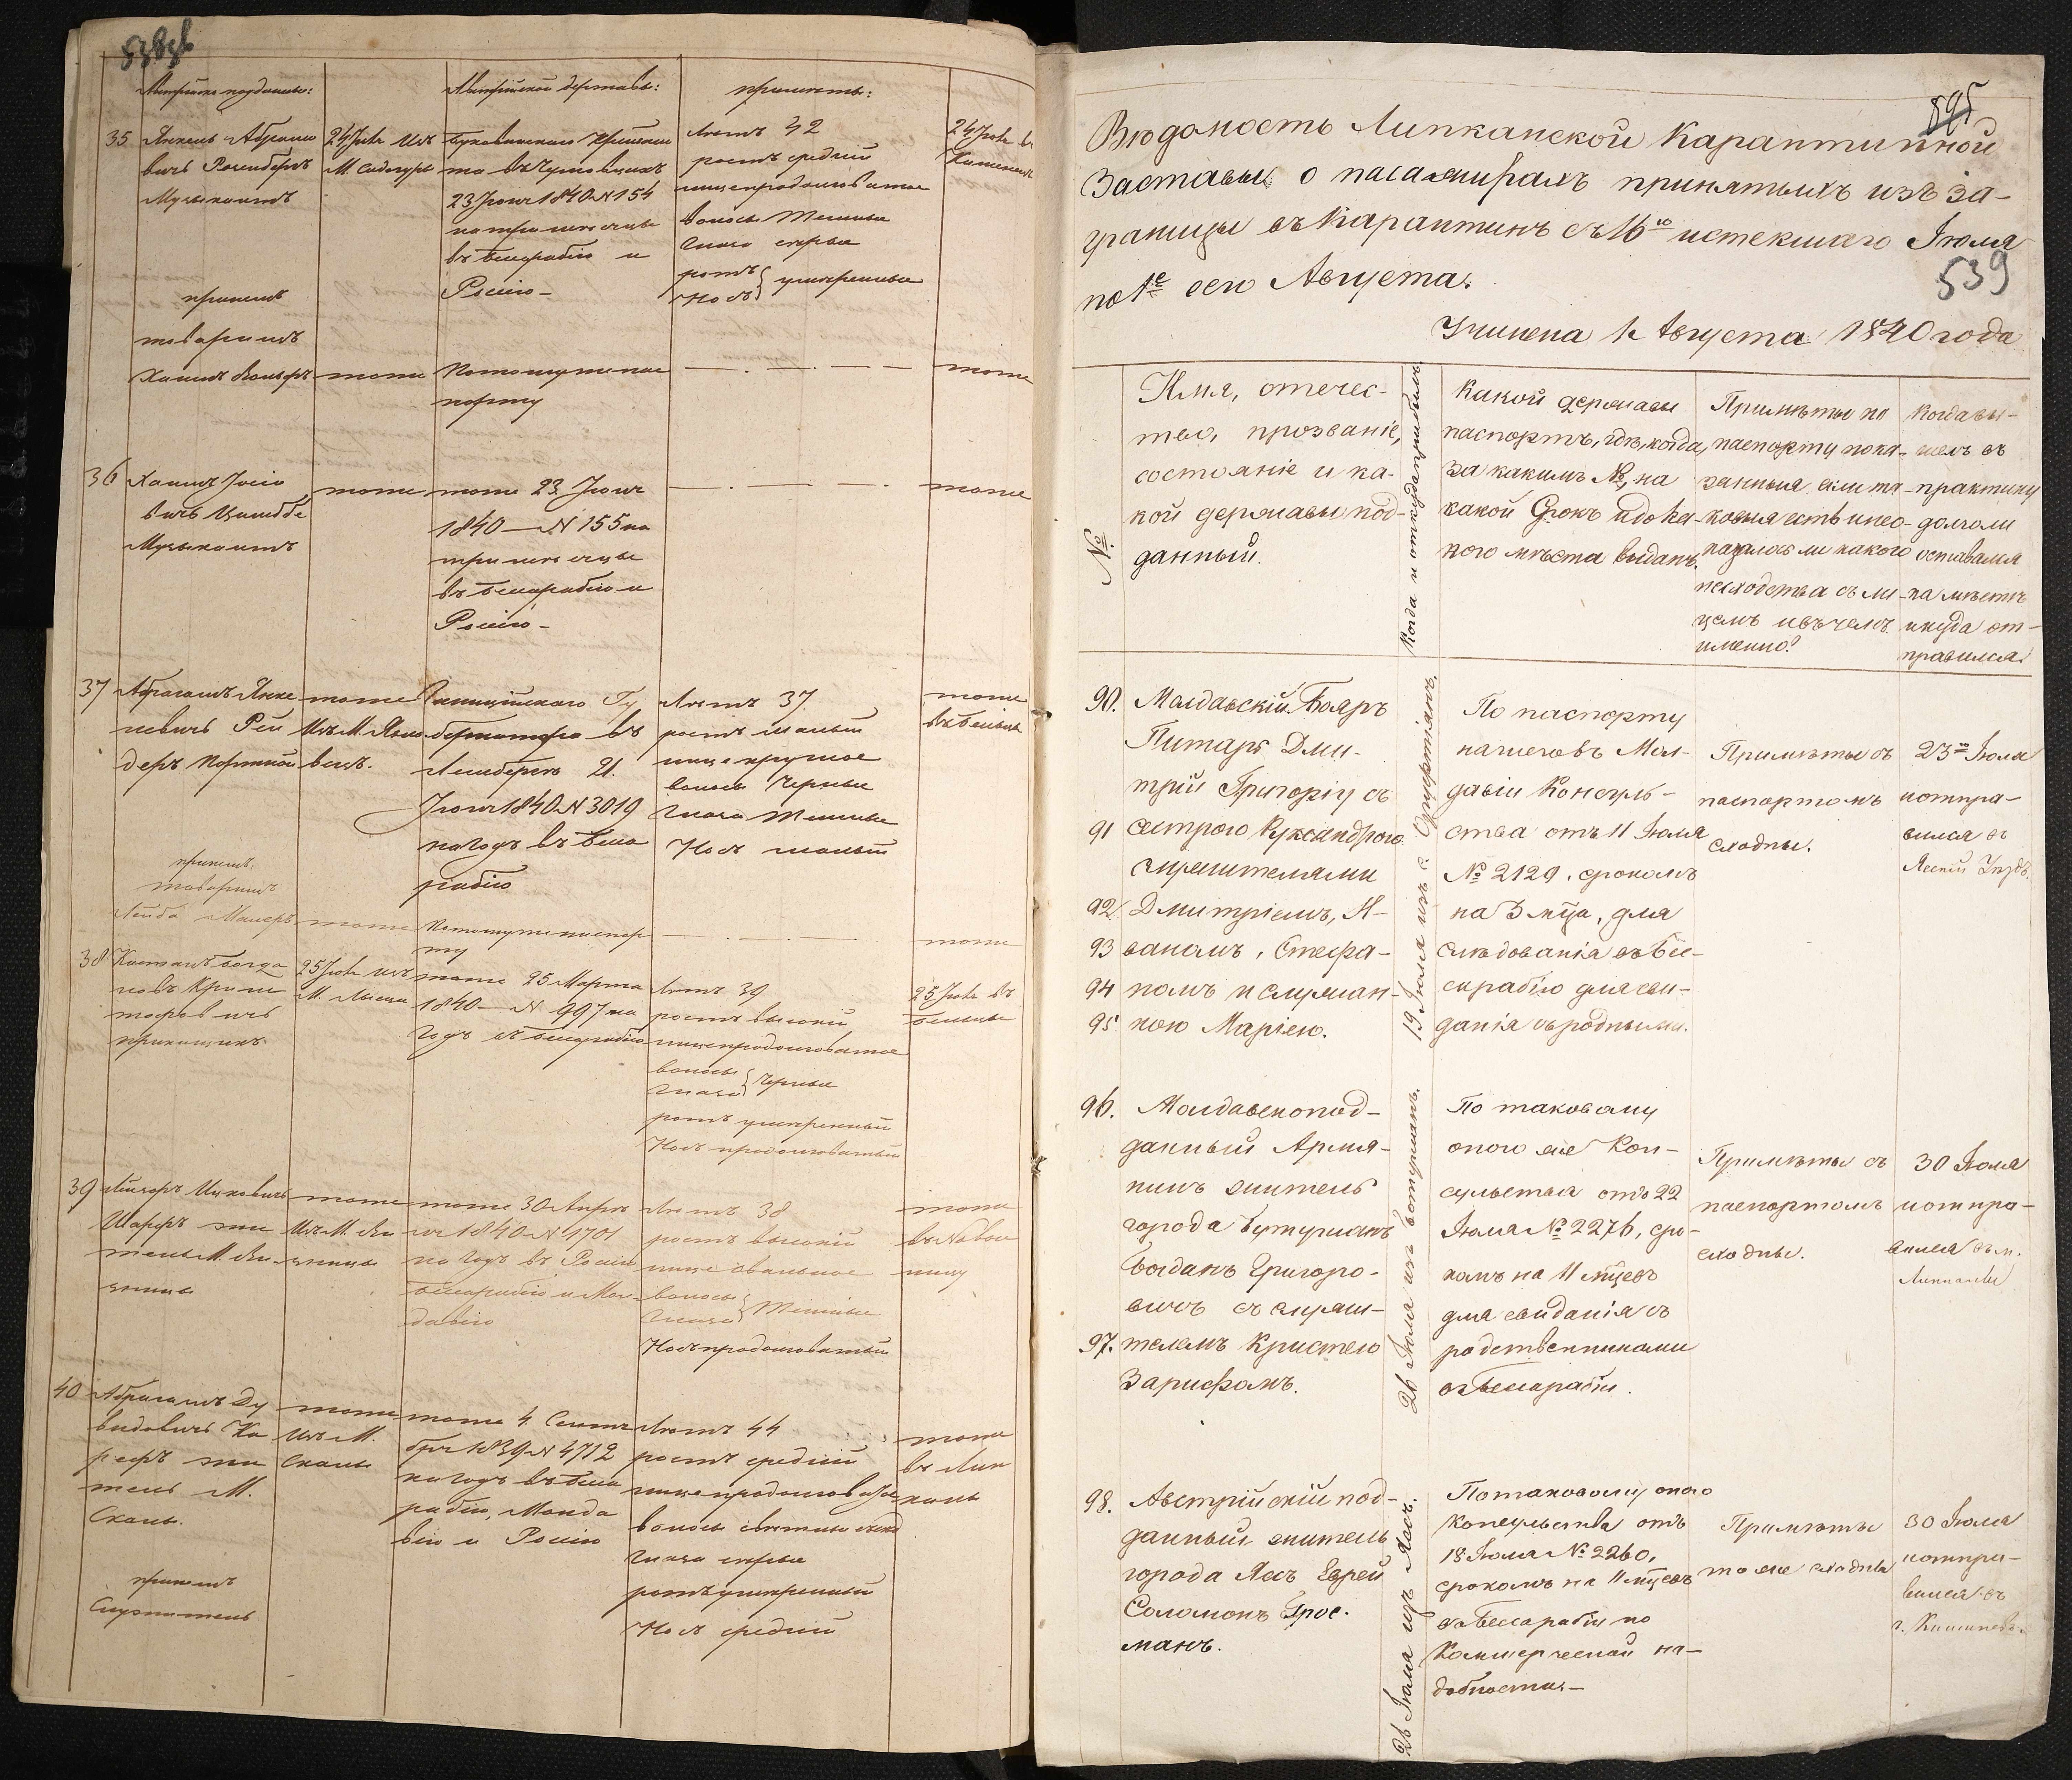 538об
Австрійско подданные:
Австрійской державы:
приметы:
35
Янкель Абрамо
вичь Розенбергъ
Музыкантъ
24 Іюля изъ
М. Садагуры
Буковинского Крейсам
та въ Черновцахъ
23 Іюля 1840 N 154
на три месяцы
въ Бесарабію и
Россію -
Летъ 42
ростъ средній
лице продолговатое
волосы темные
глаза серые
ротъ } умеренные
Носъ
24 Іюля въ
при немъ
товарищъ
Хаимъ
тоже
По тому же пас
порту
тоже
36
Хаимъ Іосіо
вичь
Музыкантъ
тоже
тоже 23 Іюля
1840 — N 155 на
три месяцы
въ Бесарабію и
Россію -
тоже
37
Абрагамъ Янке
левичь Рей
деръ Портной
тоже
Изъ М.
Галиційского Гу
бернатора въ
Лемберге 21.
Іюля 1840 N 3019
на годъ въ Беса
рабію
Летъ 37
ростъ малый
лице круглое
волосы Черные
Глаза темные
Носъ малый
тоже
въ Бельцы
при немъ
товарищъ
Лейба
тоже
По тому же паспор
ту
тоже
38
новъ Крис
тофовичь
прикащикъ
25 Іюля изъ
М.
тоже 25 Марта
1840 — N 997 на
годъ въ Бесарабію
Летъ 39
ростъ высокій
лице продолговатое
волосы
глаза } Черные
ротъ умеренный
Носъ продолговатый
25 Іюля въ
Бельцы
39
Ицковичь
жи
тель М.
тоже
Изъ М.
тоже 30 Апре
ля 1840 N 1701
на годъ въ Россію
Бесарабію и Мол
давію
Летъ 38
ростъ высокій
лице овальное
волосы
глаза } темные
Носъ продолговатый
тоже
40
Абрагамъ Ду
видовичь
жи
тель М.
Скалы.
тоже
Изъ М.
Скалы
тоже 4. Сентя
бря 1839 N 4712
на годъ въ Беса
рабію, Молда
вію и Россію
Летъ 44
ростъ средній
лице продолговатое
волосы светлые
глаза серые
ротъ умеренный
Носъ средній
тоже
въ Лип
каны
при немъ
Служитель
Вѣдомость Липканской Карантинной
Заставы о пасажирахъ принятыхъ изъ за-
границы въ Карантинъ съ 16го истекшаго Іюля
по 1е сего Августа.
539
Учинена 1 Августа 1840 года
№.
Имя, отечес-
тво, прозваніе,
состояніе и ка-
кой державы под-
данный.
Когда и откуда прибылъ
Какой державы
паспортъ, гдѣ, когда,
за какимъ №, на
какой Срокъ и до ка-
кого мѣста выданъ.
Примѣты по
паспорту пока-
занныя если та-
ковыя есть и нео-
казалось ли какого
несходства съ ли-
цемъ и въ чемъ
именно?
Когда вы-
шелъ въ
практику
долго ли
оставался
на мѣстѣ
и куда от-
правился.
90.
Молдавскій Бояръ
Питарь Дми-
трій Григоріу съ
91
сестрою Руксандрою
служителями
92
Дмитріемъ, И-
93
ваномъ, Стефа-
94
номъ и служан-
95.
кою Маріею.
По паспорту
нашего въ Мол-
давіи Консуль-
ства отъ 11 Іюля
№ 2129. срокомъ
на 3 мца, для
слѣдованія въ Бес-
сарабію для сви-
данія съ родными.
Примѣты съ
паспортомъ
сходны.
23го Іюля
и отпра-
вился въ
Ясскій Уѣздъ.
96.
Молдавскопод-
данный Армя-
нинъ житель
города Ботушанъ
Богданъ Григоро-
вичъ съ служи-
97.
телемъ Кристею
Зарифомъ.
26 Іюля изъ Ботушанъ.
По таковому
оного же Кон-
сульства отъ 22
Іюля № 2276, сро-
комъ на 11 мцевъ
для свиданія съ
родственниками
въ Бессарабіи.
Примѣты съ
паспортомъ
сходны.
30 Іюля
и отпра-
вился въ м.
Липканы
98.
Австрійскій под-
данный житель
города Яссъ Еврей
Соломонъ Грос.
манъ.
26 Іюля изъ Яссъ.
По таковому оного
Консульства отъ
18 Іюля № 2260,
срокомъ на 11 мцевъ
въ Бессарабіи по
Коммерческой на-
добности. —
Примѣты
тоже сходны
30 Іюля
и отпра-
вился въ
г. Кишиневъ.